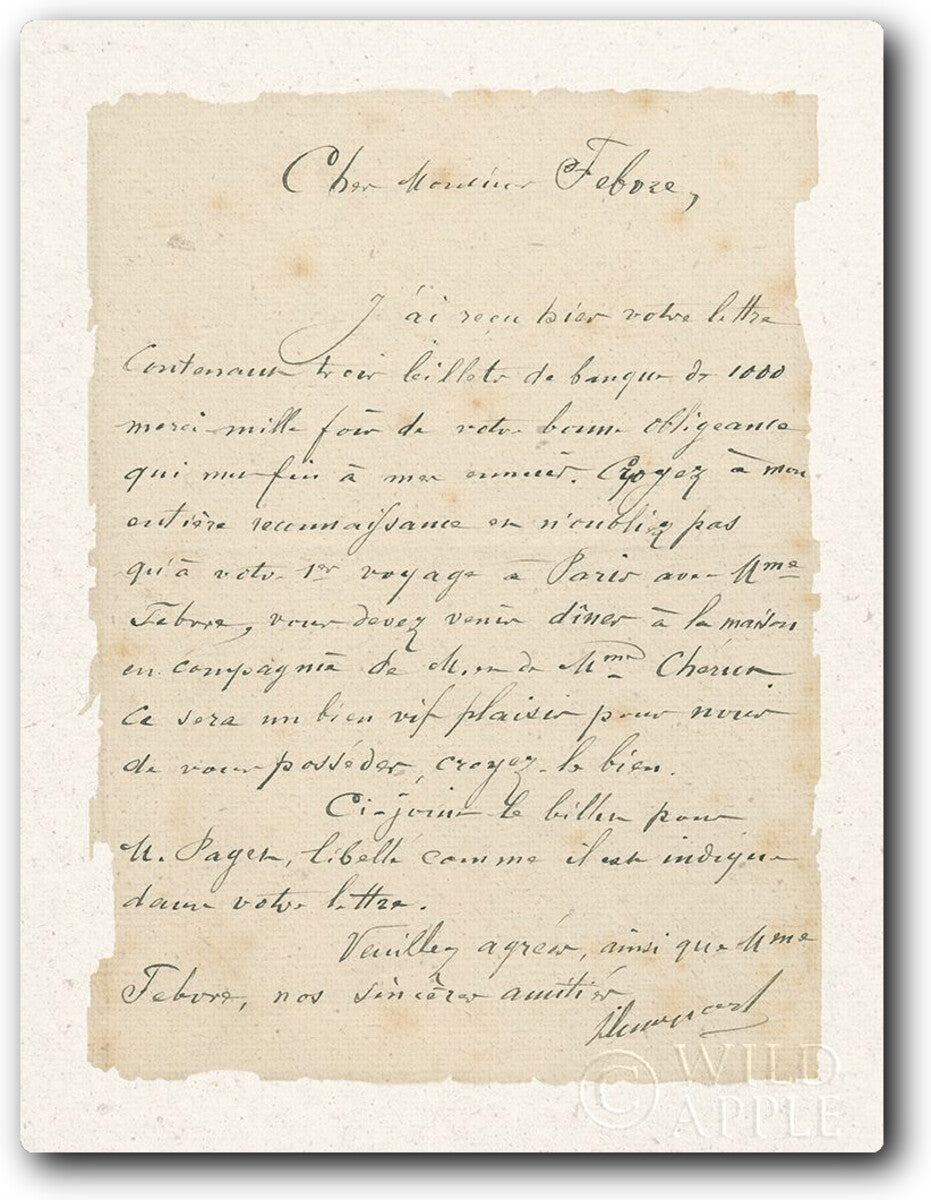 Cher Monsieur Febvre,
J'ai reçu hier votre lettre
contenant trois billets de banque de 1000
merci mille fois de votre bonne obligeance
qui met fin à mes ennuis. Croyez à mon
entière reconnaissance et n'oubliez pas
qu'à votre 1er voyage à Paris avec Mme
Febvre, vous devez venir dîner à la maison
en compagnie de M. et de Mme
Ce sera un bien vif plaisir pour nous
de vous posséder, croyez-le bien.
Ci-joint le billet pour
M. Paget, libellé comme il est indiqué
dans votre lettre.
Veuillez agréer, ainsi que Mme
Febvre, nos sincères amitiés
© WILD
APPLE